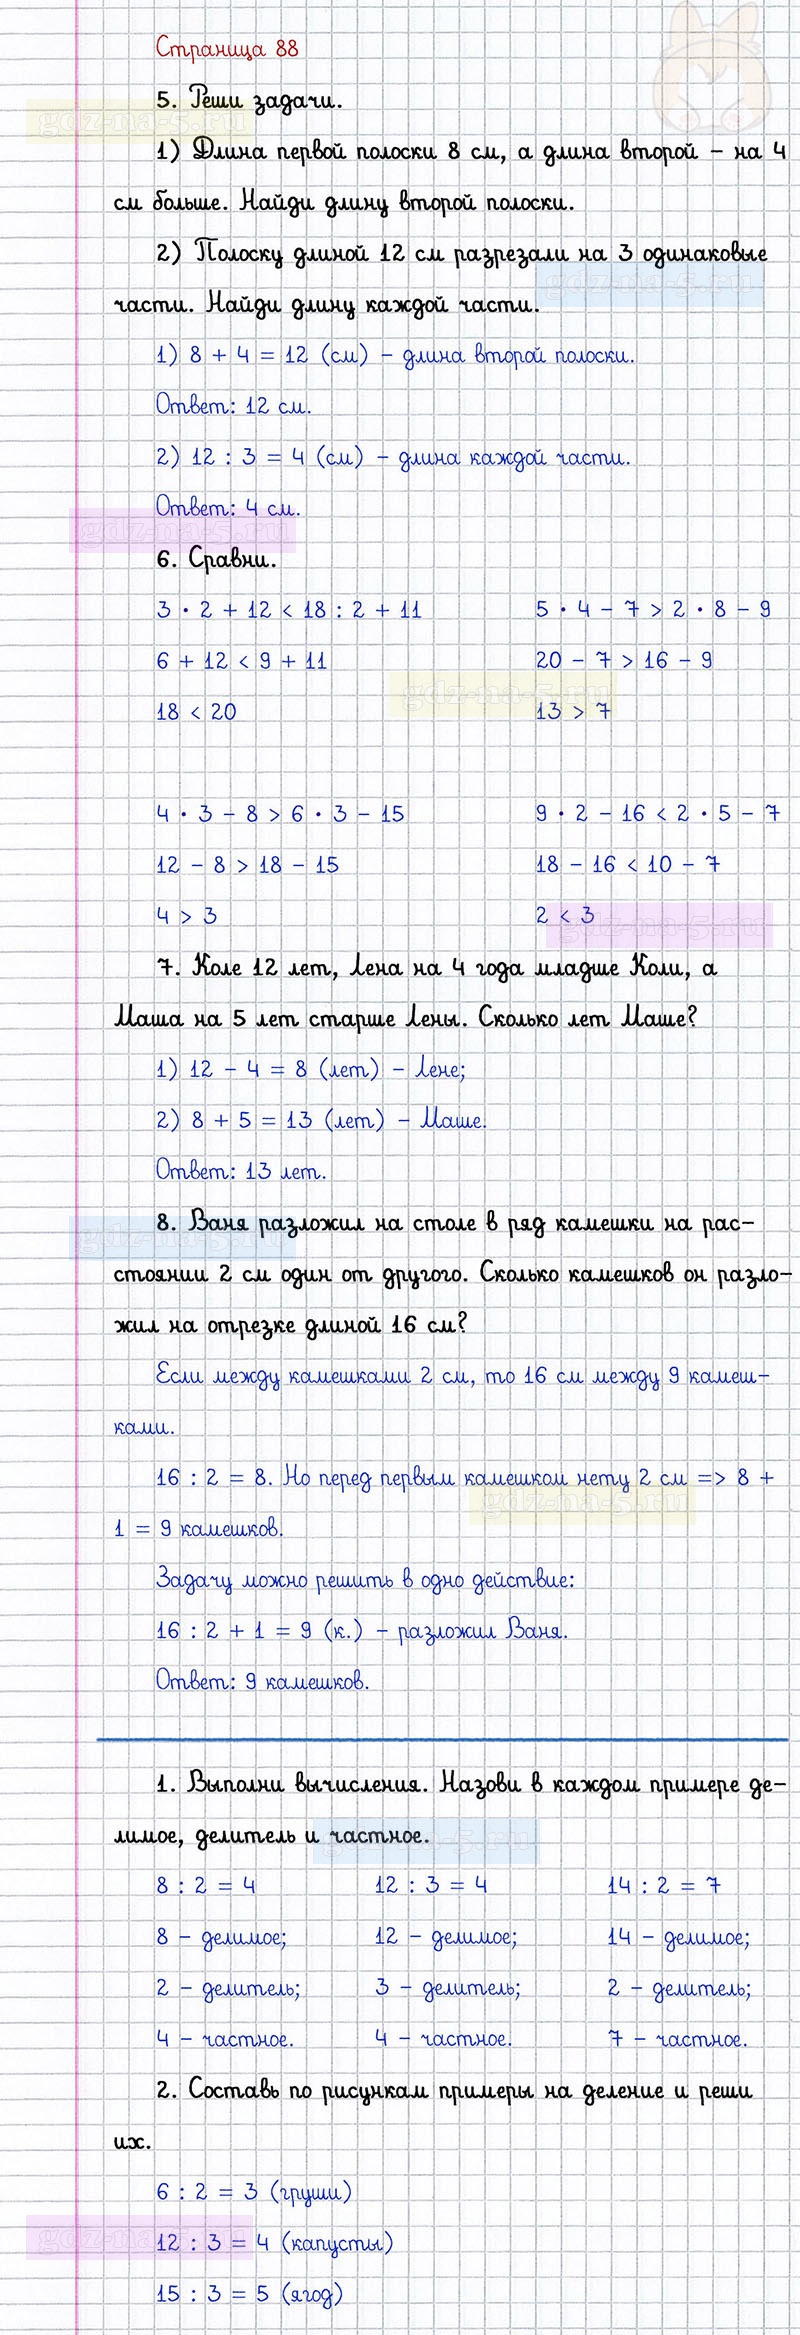 Страница 88
5. Реши задачи.
gdz-na-5.ru
1) Длина первой полоски 8 см, а длина второй – на 4
см больше. Найди длину второй полоски.
2) Полоску длиной 12 см разрезали на 3 одинаковые
gdz-na-5.ru
части. Найди длину каждой части.
1) 8 + 4 = 12 (см) – длина второй полоски.
Ответ: 12 см.
2) 12 : 3 = 4 (см) – длина каждой части.
Ответ: 4 см.
gdz-na-5.ru
6. Сравни.
3 · 2 + 12 < 18 : 2 + 11 5 · 4 – 7 > 2 · 8 – 9
6 + 12 < 9 + 11 20 – 7 > 16 – 9
gdz-na-5.ru
18 < 20 13 > 7
4 · 3 – 8 > 6 · 3 – 15 9 · 2 – 16 < 2 · 5 – 7
12 – 8 > 18 – 15 18 – 16 < 10 – 7
4 > 3 2 < 3
gdz-na-5.ru
7. Коле 12 лет, Лена на 4 года младше Коли, а
Маша на 5 лет старше Лены. Сколько лет Маше?
1) 12 – 4 = 8 (лет) – Лене;
2) 8 + 5 = 13 (лет) – Маше.
Ответ: 13 лет.
8. Ваня разложил на столе в ряд камешки на рас–
gdz-na-5.ru
стоянии 2 см один от другого. Сколько камешков он разло–
жил на отрезке длиной 16 см?
Если между камешками 2 см, то 16 см между 9 камеш–
ками.
16 : 2 = 8. Но перед первым камешком нету 2 см => 8 +
gdz-na-5.ru
1 = 9 камешков.
Задачу можно решить в одно действие:
16 : 2 + 1 = 9 (к.) – разложил Ваня.
Ответ: 9 камешков.
1. Выполни вычисления. Назови в каждом примере де–
лимое, делитель и частное.
gdz-na-5.ru
8 : 2 = 4 12 : 3 = 4 14 : 2 = 7
8 – делимое; 12 – делимое; 14 – делимое;
2 – делитель; 3 – делитель; 2 – делитель;
4 – частное. 4 – частное. 7 – частное.
2. Составь по рисункам примеры на деление и реши
их.
6 : 2 = 3 (груши)
gdz-na-5.ru
12 : 3 = 4 (капусты)
15 : 3 = 5 (ягод)